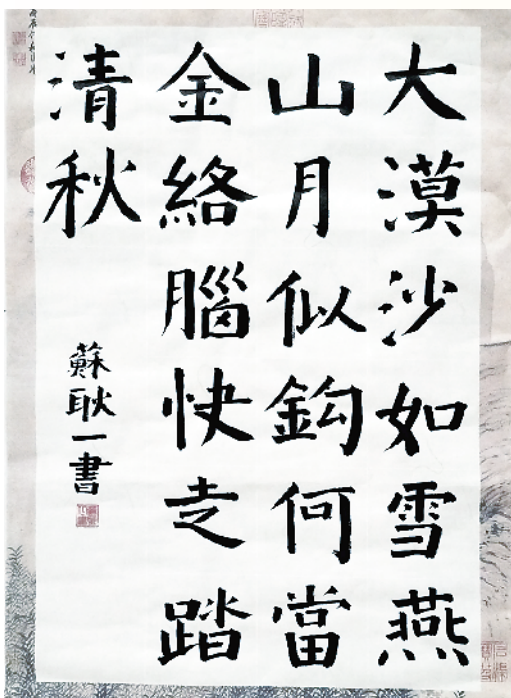 大漠沙如雪燕
山月似鈎何當
金絡腦快走踏
清秋
蘇耿一書